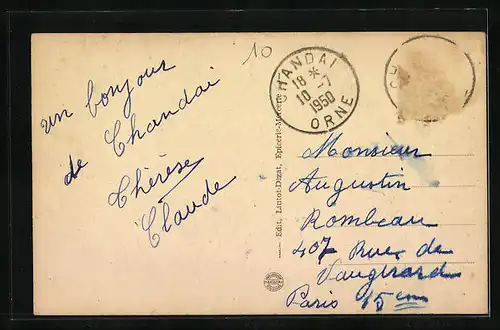 un bonjour
de Chandai
Thérèse
Claude
10
CHANDAI
18 *
10 - 7
1950
ORNE
Edit. Lintot-Dizat, Epicerie-Mercerie
Monsieur
Augustin
Rombeau
407 Rue de
Vaugirard
Paris 15em